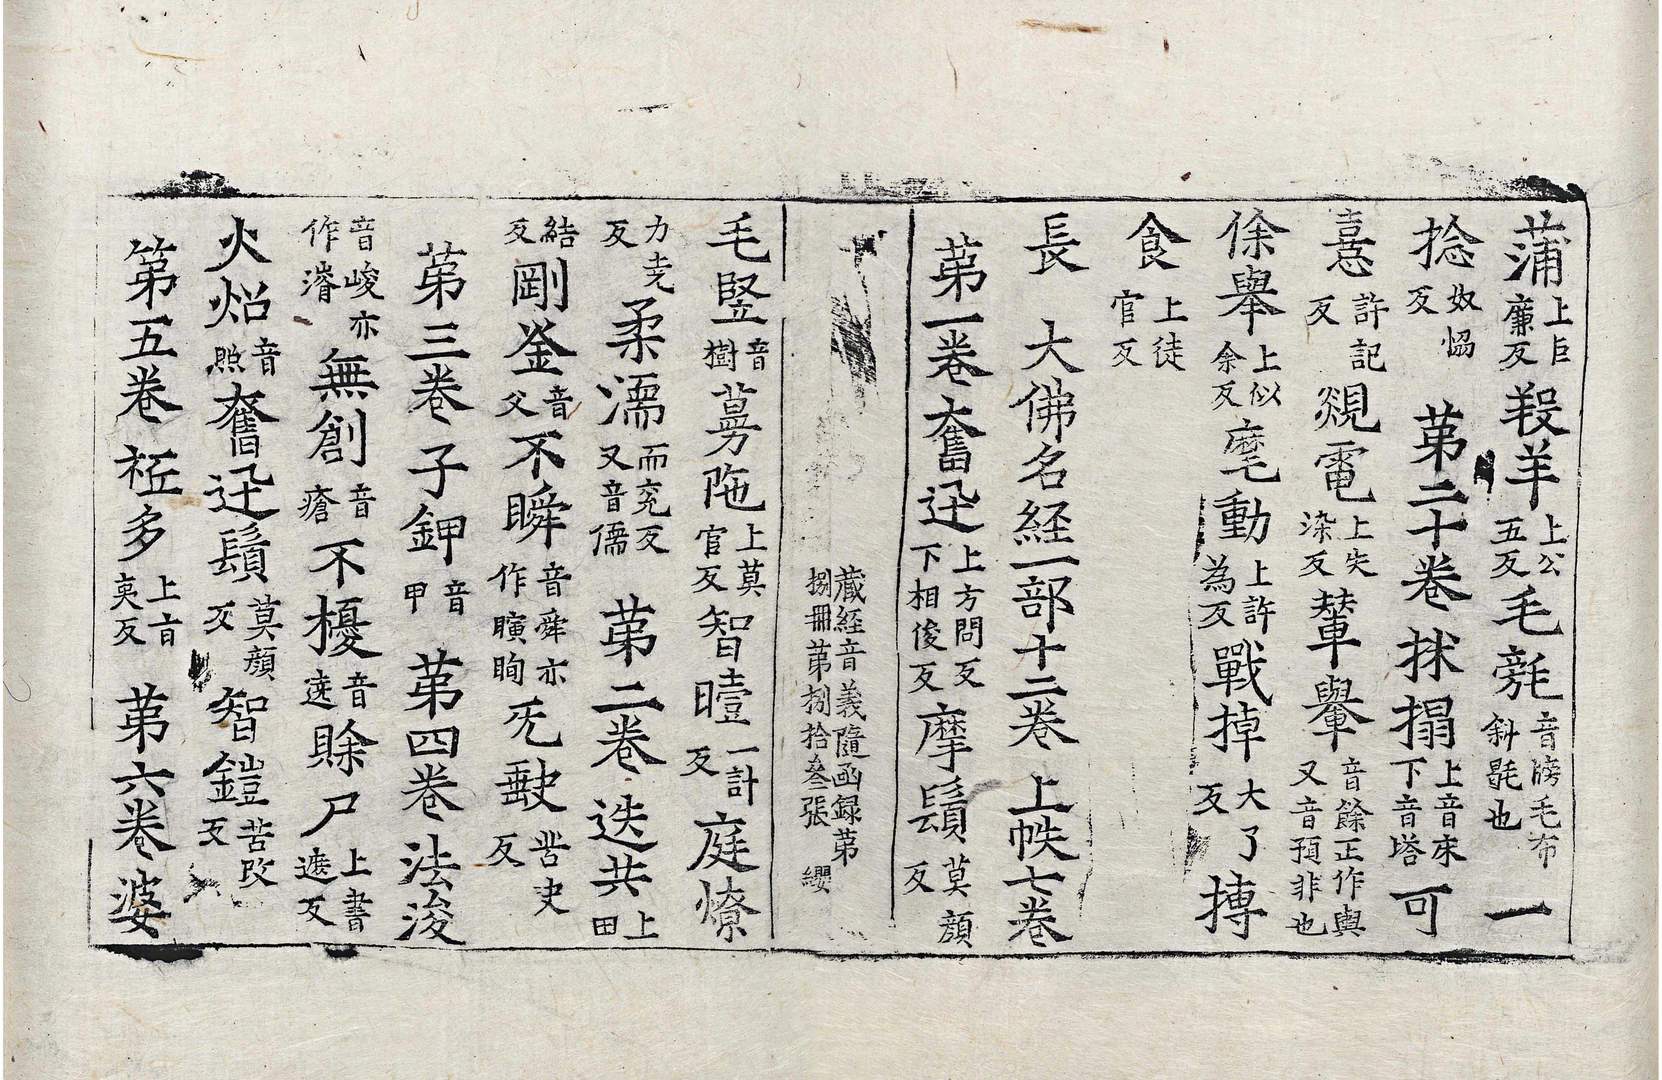 蒲上臣廉反羖羊上公五反毛㲠音牓毛布斜毼也一
捻奴恊反第二十卷抹搨上音末下音塔可
憙許記反覢電上失染反輦轝音餘正作輿又音預非也
徐舉上似余反麾動上許為反戰掉大了反摶
食上徒官反
長大佛名経一部十二卷上帙七卷
苐一卷奮迅上方問反下相俊反摩鬚莫顔反
藏経音義隨函録苐捌冊苐捌拾叄張纓
毛竪音樹蔓陁上莫官反智曀一計反庭燎
力尭反柔濡而兖反又音儒苐二卷迭共上田
結反剛釜音父不瞬音舜亦作瞚眴旡㱁苦吏反
苐三卷子鉀音甲苐四卷法浚
音峻亦作濬無創音瘡不擾音遶賒尸上書遮反
火炤音照奮迅鬚莫顔反智鎧苦改反
第五卷袛多上音夷反苐六卷婆